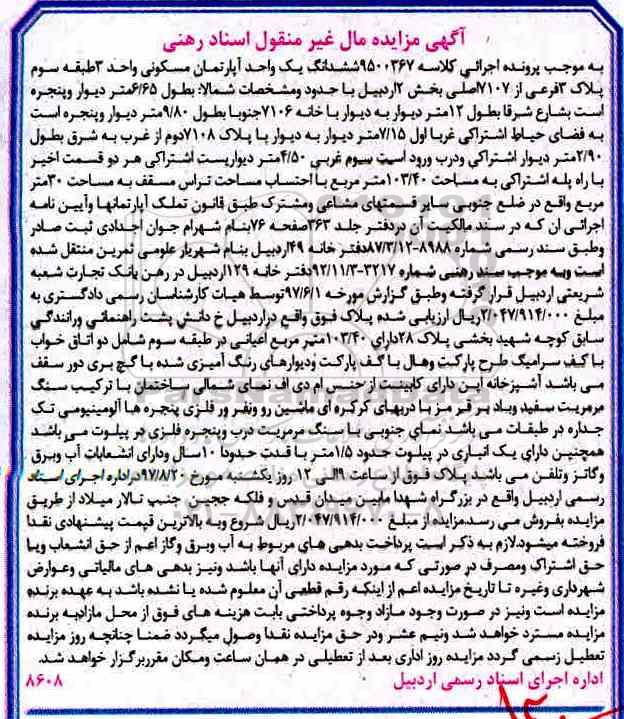 آگهی مزایده مال غیر منقول اسناد رهنی
به موجب پرونده اجرائی کلاسه ۹۵۰۰۳۶۷ششدانگ یک واحد آپارتمان مسکونی واحد ۳طبقه سوم
پلاک ۳فرعی از ۷۱۰۷اصلی بخش ۲اردبیل با حدود ومشخصات شمالا: بطول ۶/۶۵متر دیوار وپنجره
است بشارع شرقا بطول ۱۲متر دیوار به دیوار با خانه ۷۱۰۶جنوبا بطول ۹/۸۰متر دیوار وپنجره است
به فضای حیاط اشتراکی غربا اول ۷/۱۵متر دیوار به دیوار با پلاک ۷۱۰۸دوم از غرب به شرق بطول
۲/۹۰متر دیوار اشتراکی ودرب ورود است سوم غربی ۴/۵۰متر دیواریست اشتراکی هر دو قسمت اخیر
با راه پله اشتراکی به مساحت ۱۰۳/۴۰متر مربع با احتساب مساحت تراس مسقف به مساحت ۳۰متر
مربع واقع در ضلع جنوبی سایر قسمتهای مشاعی ومشترک طبق قانون تملک آپارتمانها وآیین نامه
اجرائی آن که در سند مالکیت آن دردفتر جلد ۳۶۳صفحه ۷۶بنام شهرام جوان اجدادی ثبت صادر
وطبق سند رسمی شماره ۸۹۸۸-۸۷/۳/۱۲دفتر خانه ۴۹اردبیل بنام شهریار علومی ثمرین منتقل شده
است وبه موجب سند رهنی شماره ۳۲۱۷-۹۲/۱۱/۳دفتر خانه ۱۲۹اردبیل در رهن بانک تجارت شعبه
شریعتی اردبیل قرار گرفته وطبق گزارش مورخه ۹۷/۶/۱توسط هیات کارشناسان رسمی دادگستری به
مبلغ ۲/۰۴۷/۹۱۴/۰۰۰ریال ارزیابی شده پلاک فوق واقع دراردبیل خ دانش پشت راهنمائی ورانندگی
سابق کوچه شهید بخشی پلاک ۲۸دارای ۱۰۳/۴۰متر مربع اعیانی در طبقه سوم شامل دو اتاق خواب
با کف سرامیک طرح پارکت وهال با کف پارکت ودیوارهای رنگ آمیزی شده با گچ بری دور سقف
می باشد آشپزخانه اپن دارای کابینت از جنس ام دی اف نمای شمالی ساختمان با ترکیب سنگ
مرمریت سفید وباد بر قرمز با دربهای کرکره ای ماشین رو ونفر ور فلزی پنجره ها آلومینیومی تک
جداره در طبقات می باشد نمای جنوبی با سنگ مرمریت درب وپنجره فلزی در پیلوت می باشد
همچنین دارای یک انباری در پیلوت حدود ۱/۵متر با قدت حدودا ۱۰سال ودارای انشعابات آب وبرق
وگازو وتلفن می باشد پلاک فوق از ساعت ۹الی ۱۲ روز یکشنبه مورخ ۹۷/۸/۲۰دراداره اجرای اسناد
رسمی اردبیل واقع در بزرگراه شهدا مابین میدان قدس و فلکه ججین جنب تالار میلاد از طریق
مزایده بفروش می رسد.مزایده از مبلغ ۲/۰۴۷/۹۱۴/۰۰۰ریال شروع وبه بالاترین قیمت پیشنهادی نقدا
فروخته میشود.لازم به ذکر است پرداخت بدهی های مربوط به آب وبرق وگاز اعم از حق انشعاب ویا
حق اشتراک ومصرف در صورتی که مورد مزایده دارای آنها باشد ونیز بدهی های مالیاتی وعوارض
شهرداری وغیره تا تاریخ مزایده اعم از اینکه رقم قطعی آن معلوم شده یا نشده باشد به عهده برنده
مزایده است ونیز در صورت وجود مازاد وجوه پرداختی بابت هزینه های فوق از محل مازادبه برنده
مزایده مسترد خواهد شد ونیم عشر ودر حق مزایده نقدا وصول میگردد ضمنا چنانچه روز مزایده
تعطیل رسمی گردد مزایده روز اداری بعد از تعطیلی در همان ساعت ومکان مقرربرگزار خواهد شد.
اداره اجرای اسناد رسمی اردبیل ۸۶۰۸